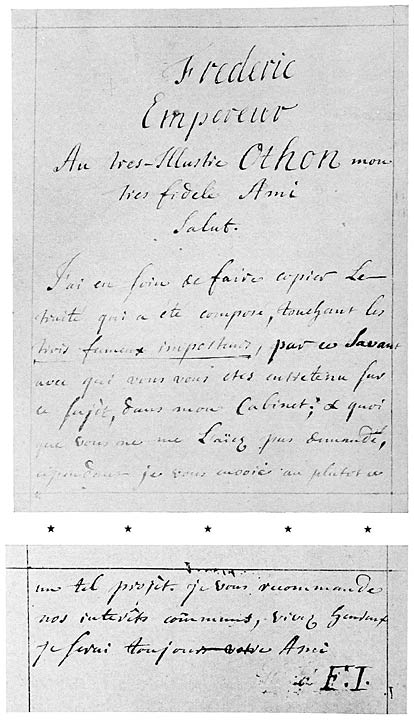 Frederic
Empereur
Au tres-Illustre Othon mon
tres fidele Ami
Salut.
J'ai eu soin de faire copier Le
traité qui a eté composé, touchant les
trois fameux imposteurs, par ce Savant
avec qui vous vous etes entretenu sur
ce sujèt, dans mon Cabinet; & quoi
que vous ne me L'aiez pas demandé,
cependant je vous envoiés au plutot ce
★ ★ ★ ★ ★
un tel projèt. je vous recommande
nos interêts communs, vivez heureux
je serai toujours votre Ami
à F. I.